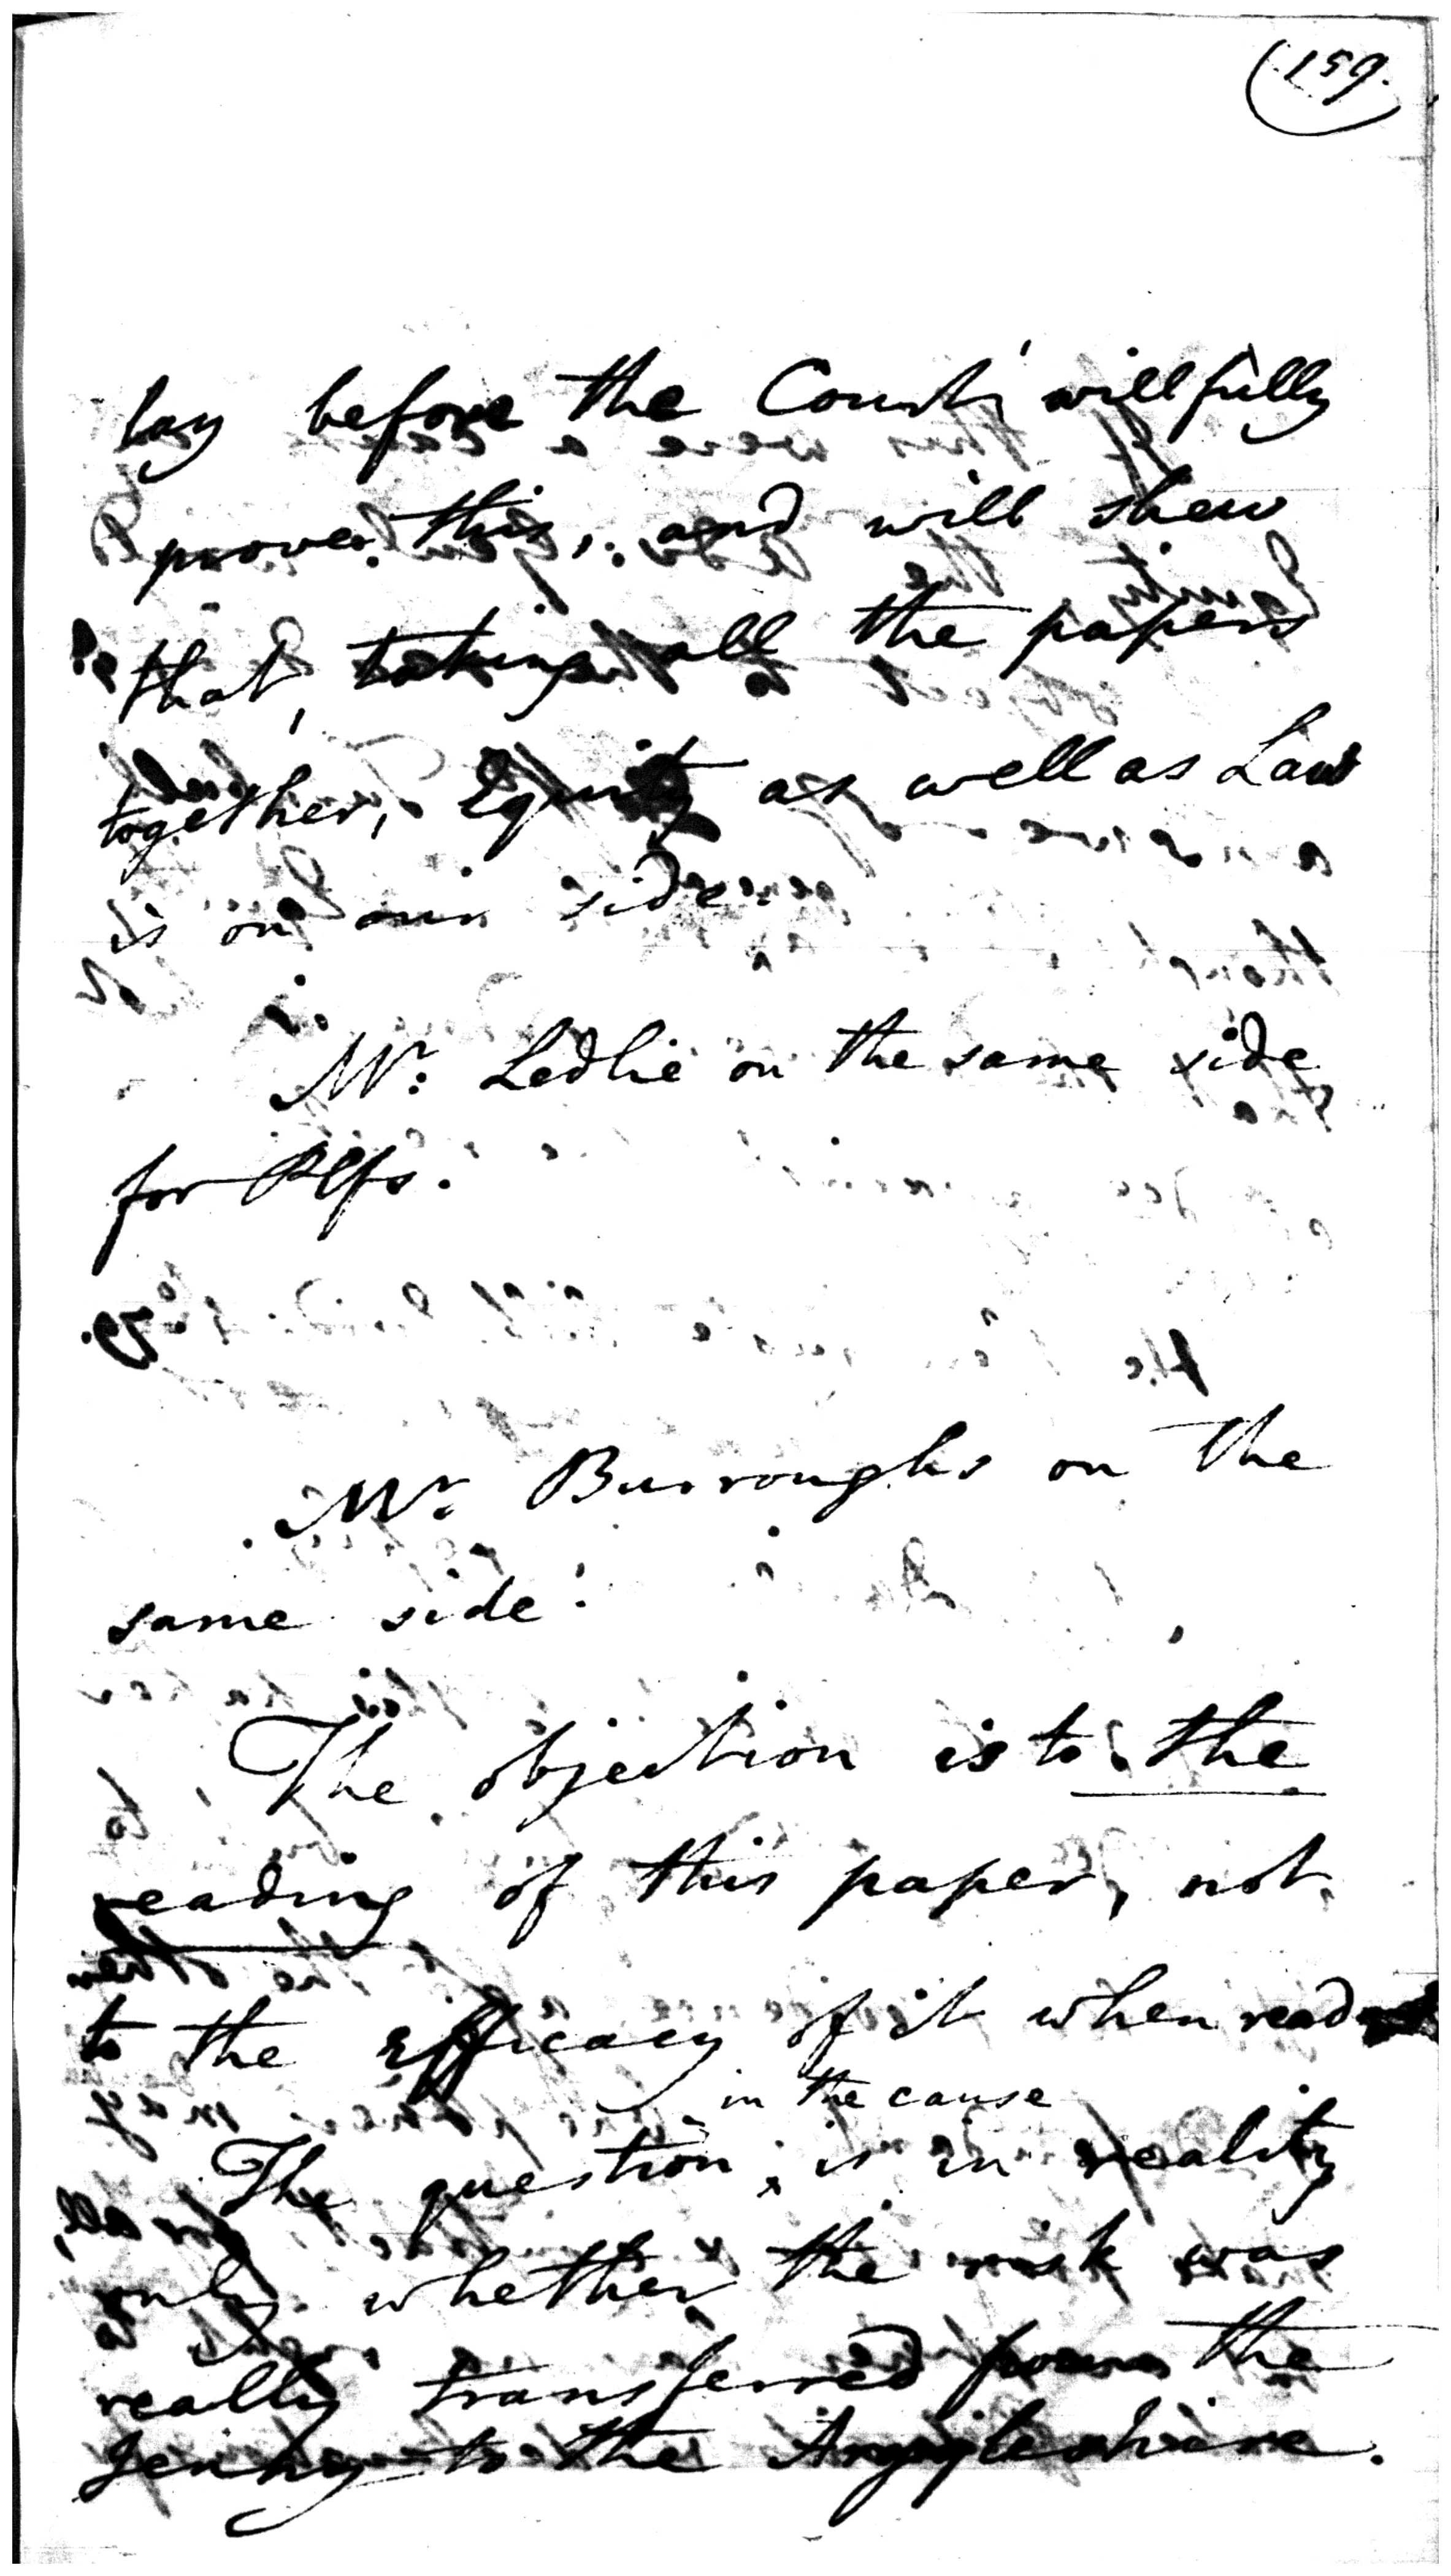 (159.
lay before the Court will fully
prove this, and will shew
that, taking all the papers
together, Equity as well as Law
is on our side.
Mr. Ledlie on the same side
for Plfs.
Mr. Burroughs on the
same side.
The objection is to the
reading of this paper, not
to the efficacy of it when read
in the cause
The question x is in reality
only whether the risk was
really transferred from the
Jenny to the Argyleshire.